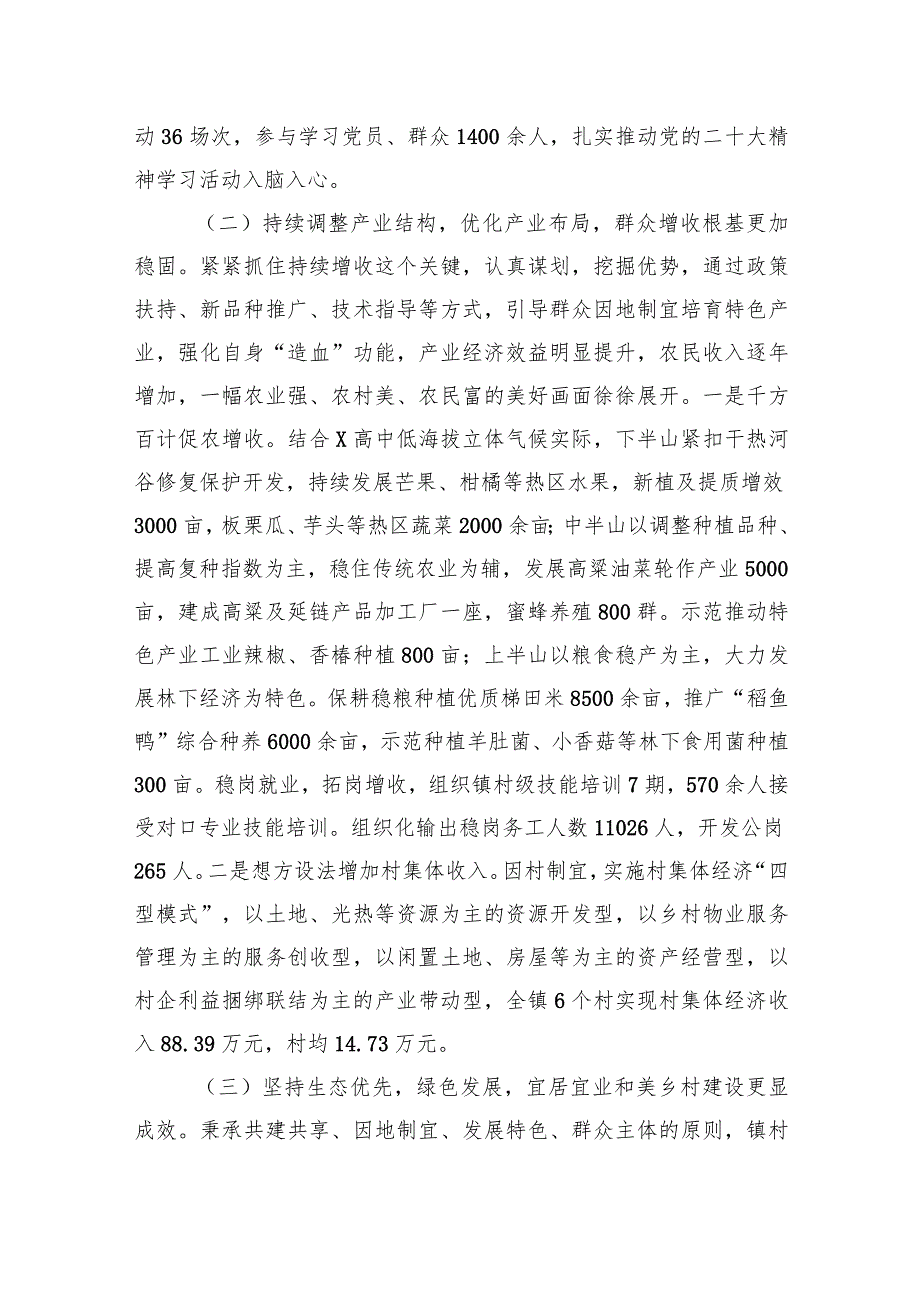 动 36 场次，参与学习党员、群众 1400 余人，扎实推动党的二十大精
神学习活动入脑入心。
（二）持续调整产业结构，优化产业布局，群众增收根基更加
稳固。紧紧抓住持续增收这个关键，认真谋划，挖掘优势，通过政策
扶持、新品种推广、技术指导等方式，引导群众因地制宜培育特色产
业，强化自身“造血”功能，产业经济效益明显提升，农民收入逐年
增加，一幅农业强、农村美、农民富的美好画面徐徐展开。一是千方
百计促农增收。结合 X 高中低海拔立体气候实际，下半山紧扣干热河
谷修复保护开发，持续发展芒果、柑橘等热区水果，新植及提质增效
3000 亩，板栗瓜、芋头等热区蔬菜 2000 余亩；中半山以调整种植品种、
提高复种指数为主，稳住传统农业为辅，发展高粱油菜轮作产业 5000
亩，建成高粱及延链产品加工厂一座，蜜蜂养殖 800 群。示范推动特
色产业工业辣椒、香椿种植 800 亩；上半山以粮食稳产为主，大力发
展林下经济为特色。保耕稳粮种植优质梯田米 8500 余亩，推广“稻鱼
鸭”综合种养 6000 余亩，示范种植羊肚菌、小香菇等林下食用菌种植
300 亩。稳岗就业，拓岗增收，组织镇村级技能培训 7 期，570 余人接
受对口专业技能培训。组织化输出稳岗务工人数 11026 人，开发公岗
265 人。二是想方设法增加村集体收入。因村制宜，实施村集体经济“四
型模式”，以土地、光热等资源为主的资源开发型，以乡村物业服务
管理为主的服务创收型，以闲置土地、房屋等为主的资产经营型，以
村企利益捆绑联结为主的产业带动型，全镇 6 个村实现村集体经济收
入 88.39 万元，村均 14.73 万元。
（三）坚持生态优先，绿色发展，宜居宜业和美乡村建设更显
成效。秉承共建共享、因地制宜、发展特色、群众主体的原则，镇村